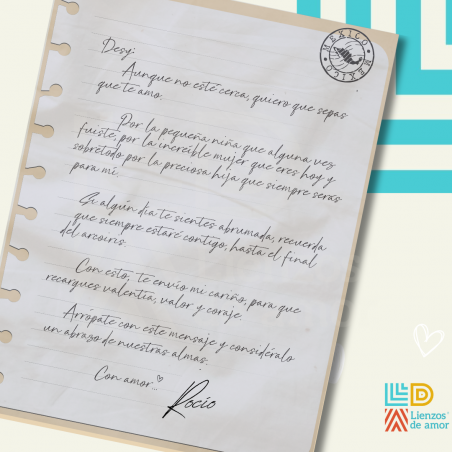 MEXICO • MEXICO •
Desy:
Aunque no esté cerca, quiero que sepas
que te amo.
Por la pequeña niña que alguna vez
fuiste, por la increíble mujer que eres hoy y
sobretodo por la preciosa hija que siempre serás
para mi.
Si algún día te sientes abrumada, recuerda
que siempre estaré contigo, hasta el final
del arcoiris.
Con esto, te envío mi cariño, para que
recargues valentía, valor y coraje.
Arrópate con este mensaje y considéralo
un abrazo de nuestras almas.
Con amor...
Rocío
LD
Lienzos®
de amor